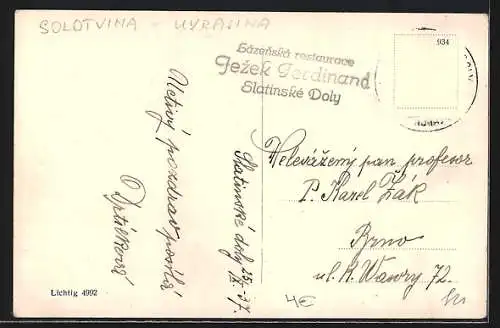 SOLOTVINA - UKRAJINA
Lázeňská restaurace
Ježek Ferdinand
Slatinské Doly
934
Uctivý pozdrav posílá
Slatinské doly 25/ 37.
Velevážený pan profesor
P. Karel Žák
Brno
ul. H. Wawry 72.
Lichtig 4992
4€